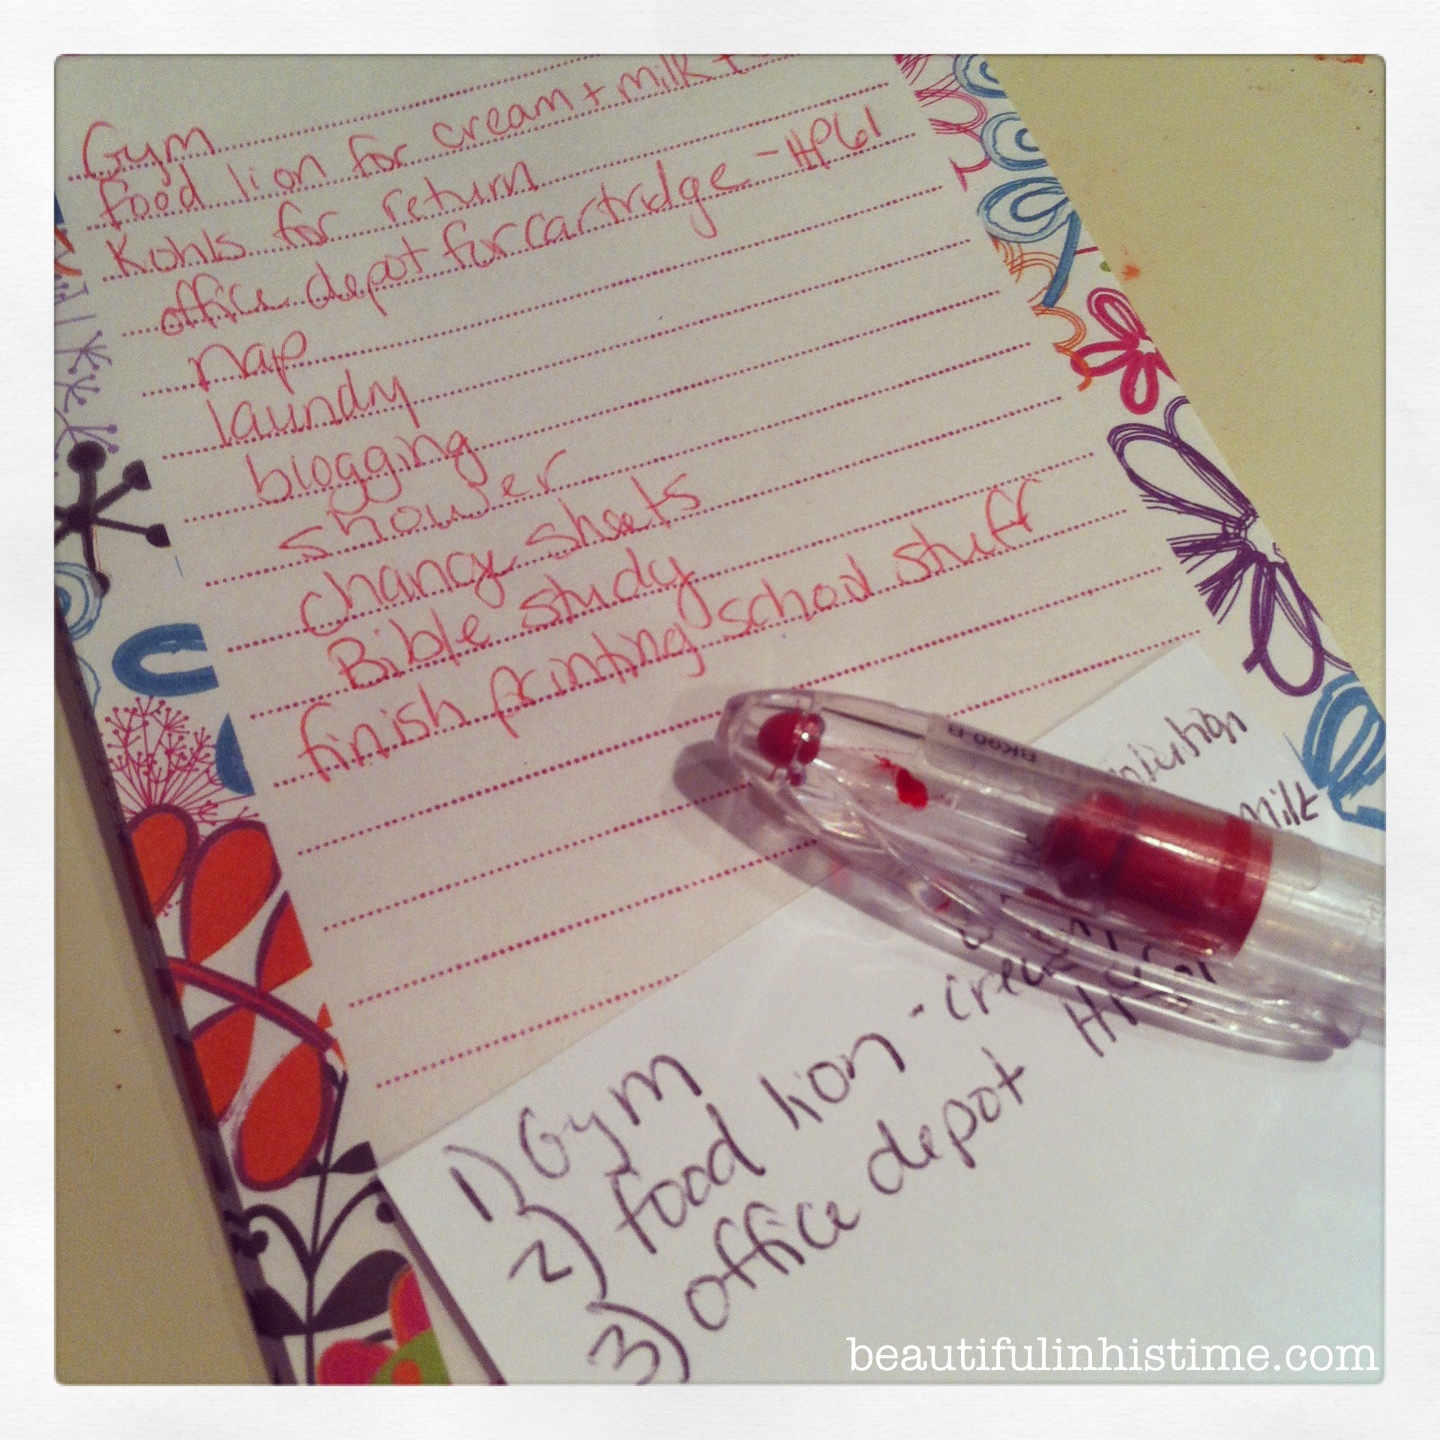 Gym
Food lion for cream + milk +
Kohls for return
office depot for cartridge - HP61
Nap
laundry
blogging
shower
change sheets
Bible study
finish printing school stuff
BK90 B
Milk
1) Gym
2) Food lion -
3) office depot
beautifulinhistime.com